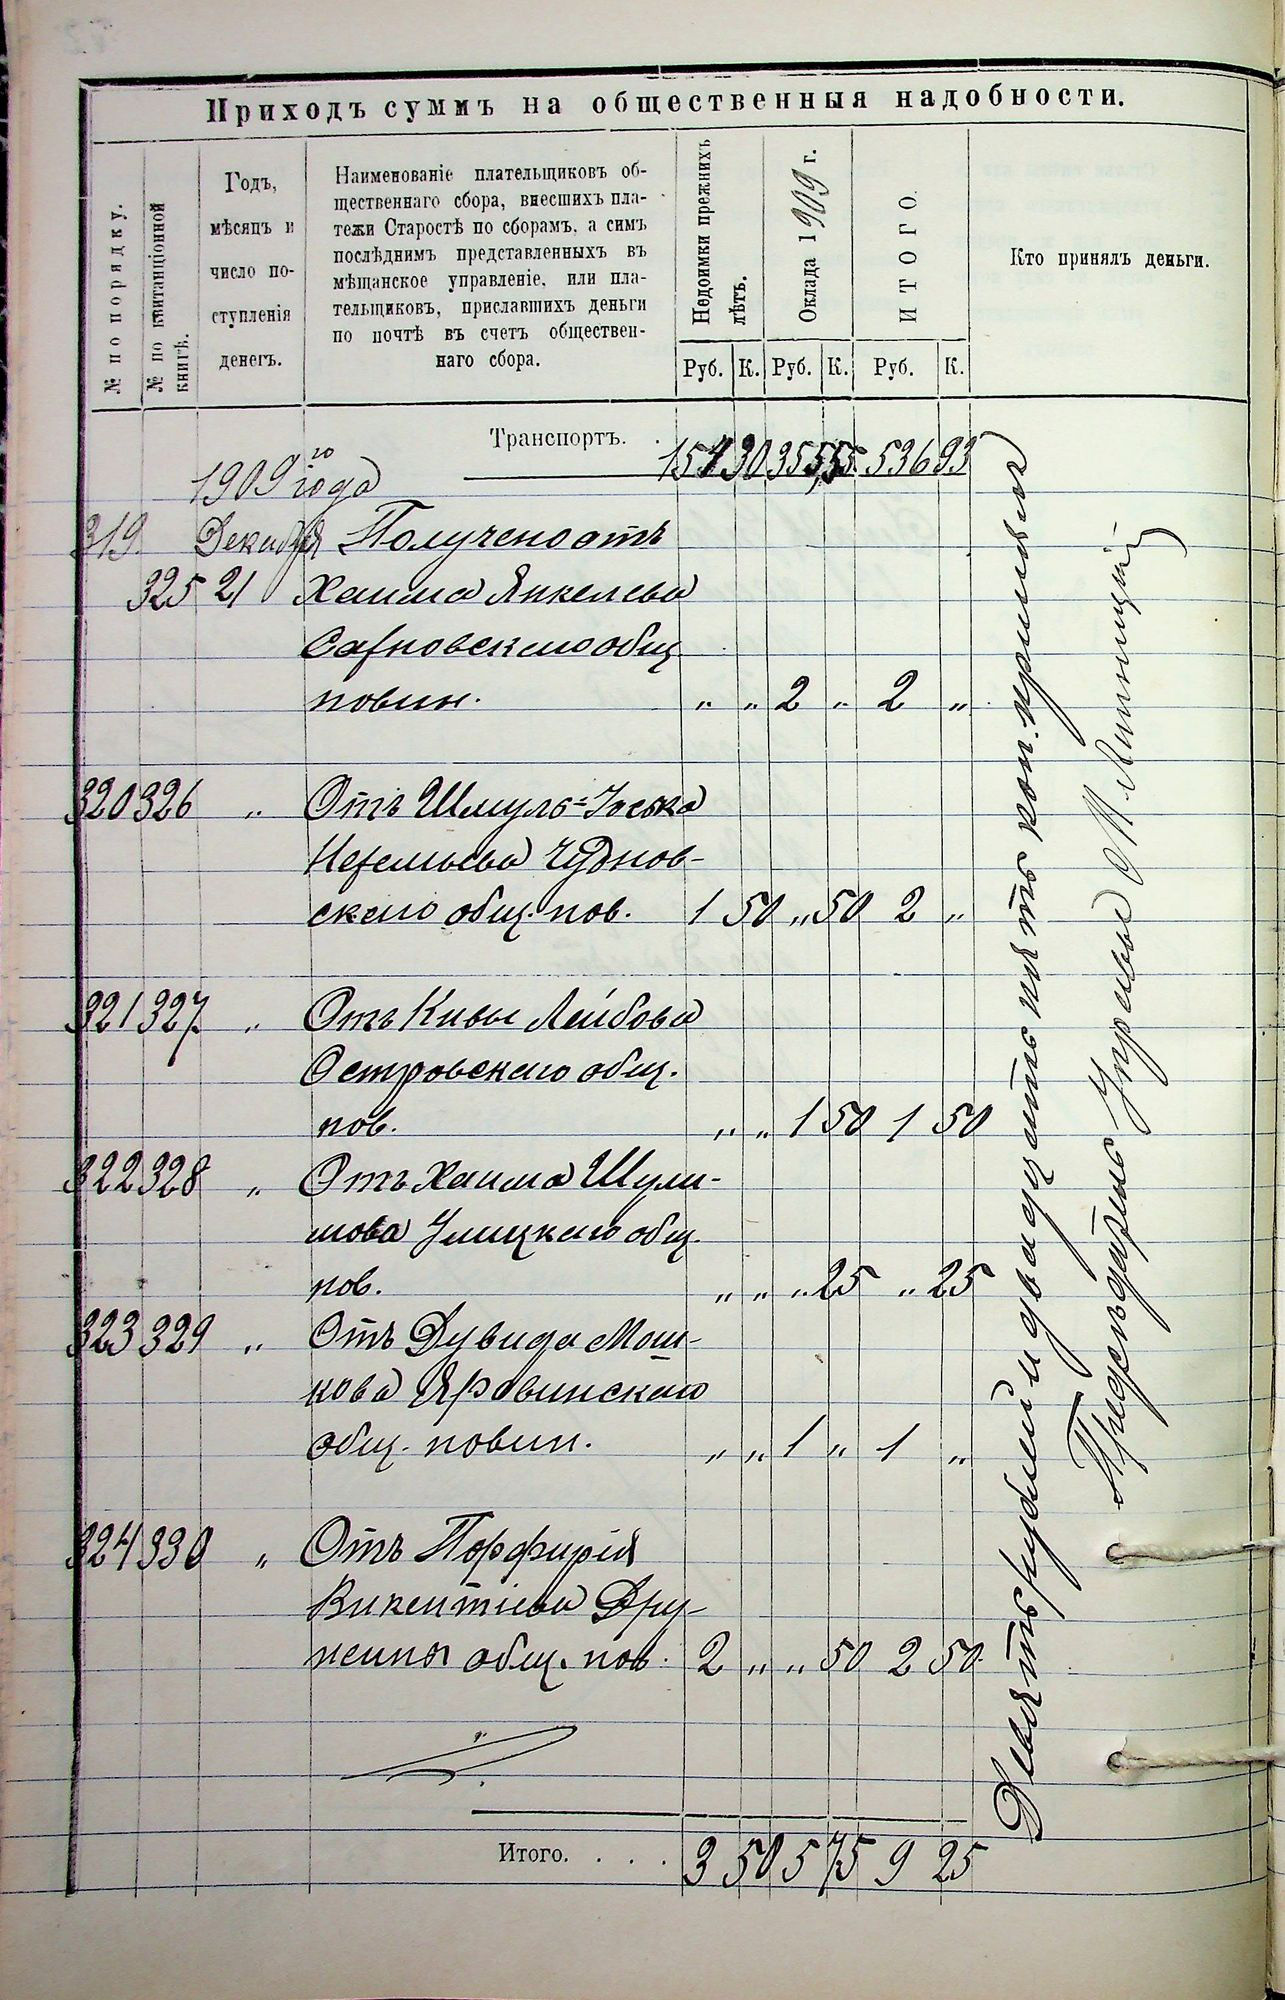 Приходъ суммъ на общественныя надобности.
№ по порядку.
№ по квитанціонной
книгѣ.
Годъ,
мѣсяцъ и
число по-
ступленія
денегъ.
Наименованіе плательщиковъ об-
щественнаго сбора, внесшихъ пла-
тежи Старостѣ по сборамъ, а симъ
послѣднимъ представленныхъ въ
мѣщанское управленіе, или пла-
тельщиковъ, приславшихъ деньги
по почтѣ въ счетъ обществен-
наго сбора.
Недоимки прежнихъ
лѣтъ.
Оклада 1909 г.
ИТОГО.
Кто принялъ деньги.
Руб. К. Руб. К. Руб. К.
Транспортъ. 30 355 536 93
1909 го года
319 Декабря Получено отъ
325 21 Хаима Янкелева
Сарновскаго общ.
повин. „ „ 2 „ 2 „
320 326 „ Отъ Шмуль-Іоська
Чуднов-
скаго общ. пов. 1 50 „ 50 2 „
321 327 „ Отъ Кивы Лейбова
Островскаго общ.
пов. „ „ 1 50 1 50
322 328 „ Отъ Хаима Шули-
мова Улицкаго общ.
пов. „ „ „ 25 „ 25
323 329 „ Отъ Дувида Мош-
кова Яровинскаго
общ. повин. „ „ 1 „ 1 „
324 330 „ Отъ Порфирія
Викентіева Дру-
общ. пов. 2 „ „ 50 2 50
Итого. . . . 3 50 5 75 9 25
Девять рублей и двадцать пять коп. принялъ
Предсѣдатель Управы М. Липницкій